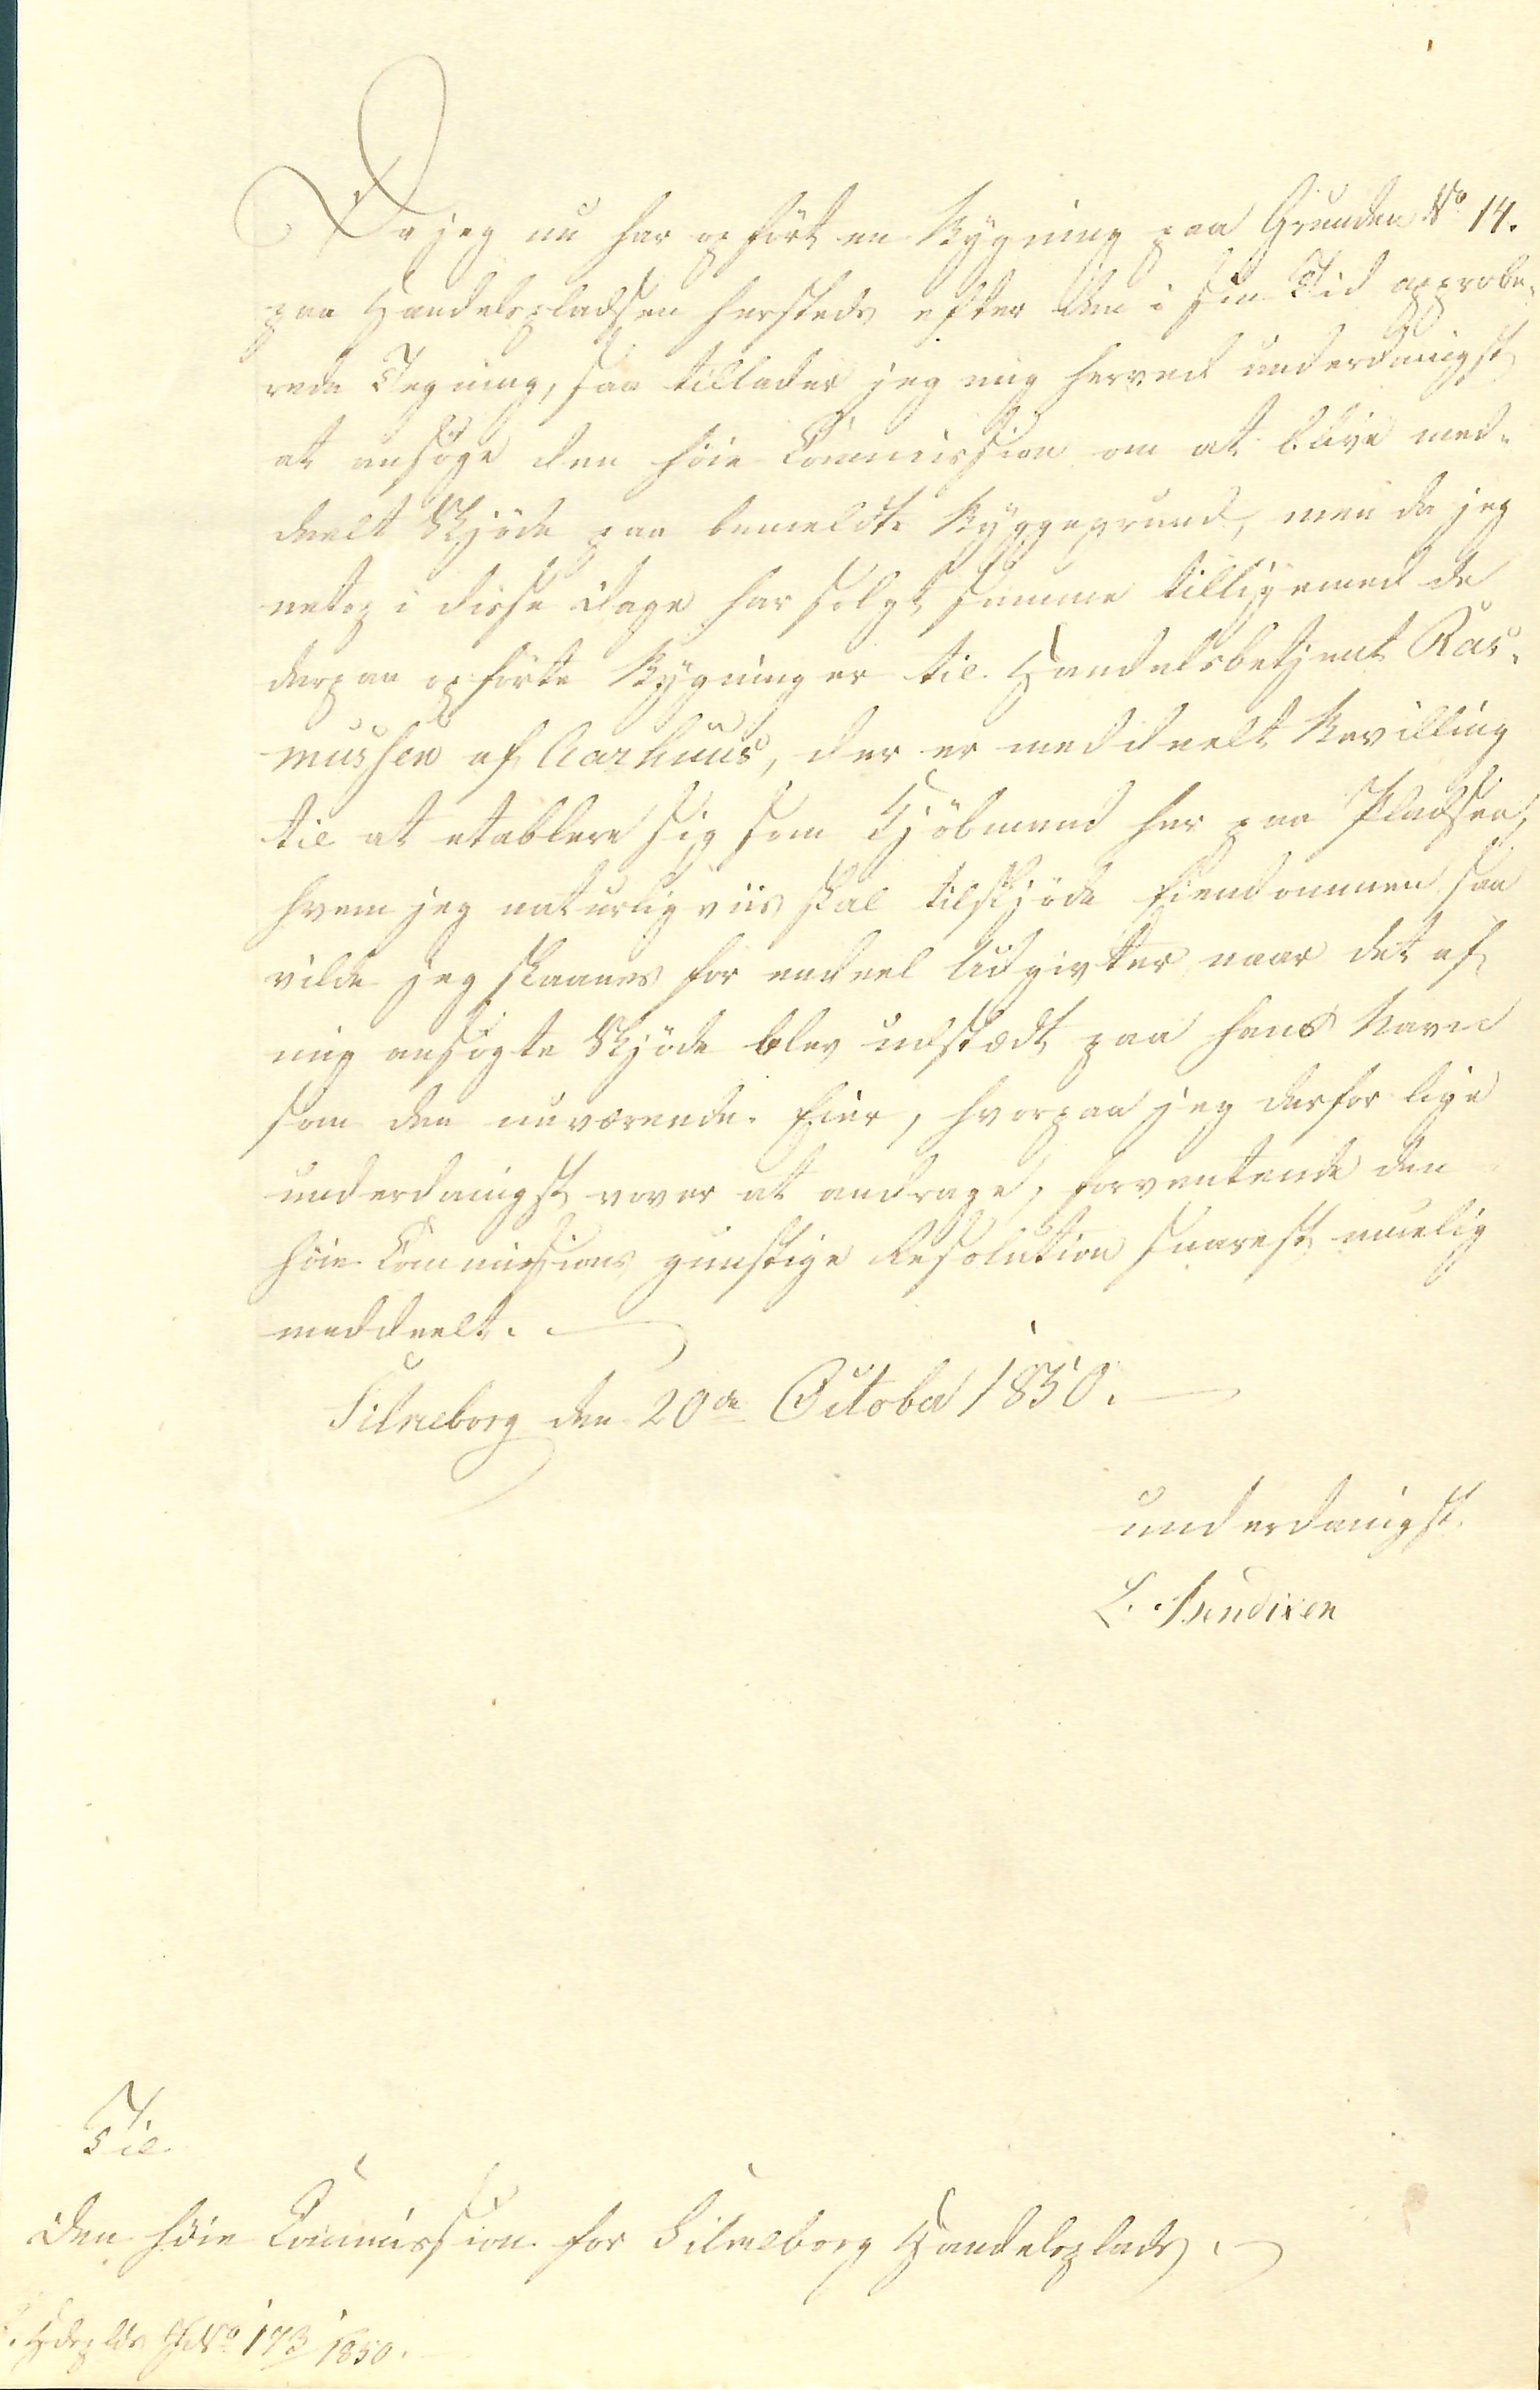 Da jeg nu har opført en Bygning paa Grunden No 14.
paa Handelspladsen hersteds efter den i sin Tid approbe-
rede Tegning, saa tillader jeg mig herved underdanigst
at ansøge den høie Commission om at blive med-
deelt Skjøde paa bemeldte Byggegrund, men da jeg
netop i disse Dage har solgt samme tilligemed de
derpaa opførte Bygninger til Handelsbetjent Ras-
mussen af Aarhuus, der er meddeelt Bevilling
til at etablere sig som Kjøbmand her paa Pladsen,
hvem jeg naturligviis skal tilskjøde Eiendommen saa
vilde jeg skaanes for endeel Udgivter, naar det af
mig ansøgte Skjøde blev udstædt paa hans Navn
som den nuværende Eier, hvorpaa jeg derfor lige
underdanigst vover at andrage, forventende den
høie Commissions gunstige Resolution snarest muelig
meddeelt.
Silkeborg den 20de October 1850.
underdanigst
L. Bendixen
Til
den høie Commission for Silkeborg Handelsplads.
Hdsplds J No 173/1850.